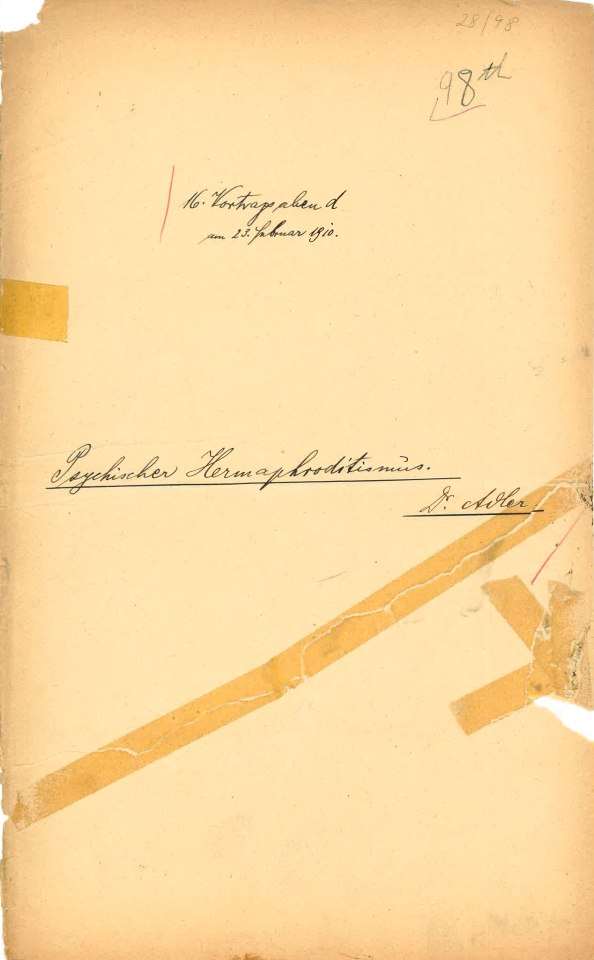 28/98
98th
16. Vortragsabend
am 23. Februar 1910.
Psychischer Hermaphroditismus.
Dr. Adler.